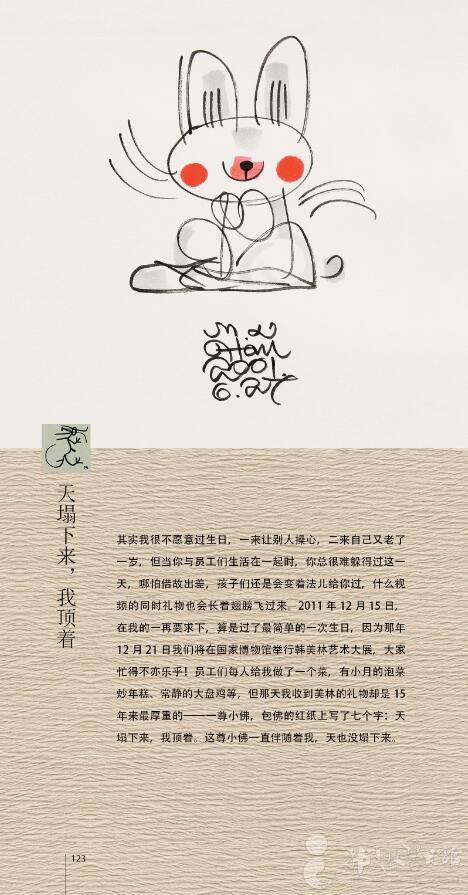 M.L
Han
2001.
6.27
天塌下来，我顶着
其实我很不愿意过生日，一来让别人操心，二来自己又老了
一岁，但当你与员工们生活在一起时，你总很难躲得过这一
天，哪怕借故出差，孩子们还是会变着法儿给你过，什么视
频的同时礼物也会长着翅膀飞过来。2011 年 12 月 15 日，
在我的一再要求下，算是过了最简单的一次生日，因为那年
12 月 21 日我们将在国家博物馆举行韩美林艺术大展，大家
忙得不亦乐乎！员工们每人给我做了一个菜，有小月的泡菜
炒年糕、常静的大盘鸡等，但那天我收到美林的礼物却是 15
年来最厚重的——一尊小佛，包佛的红纸上写了七个字：天
塌下来，我顶着。这尊小佛一直伴随着我，天也没塌下来。
123